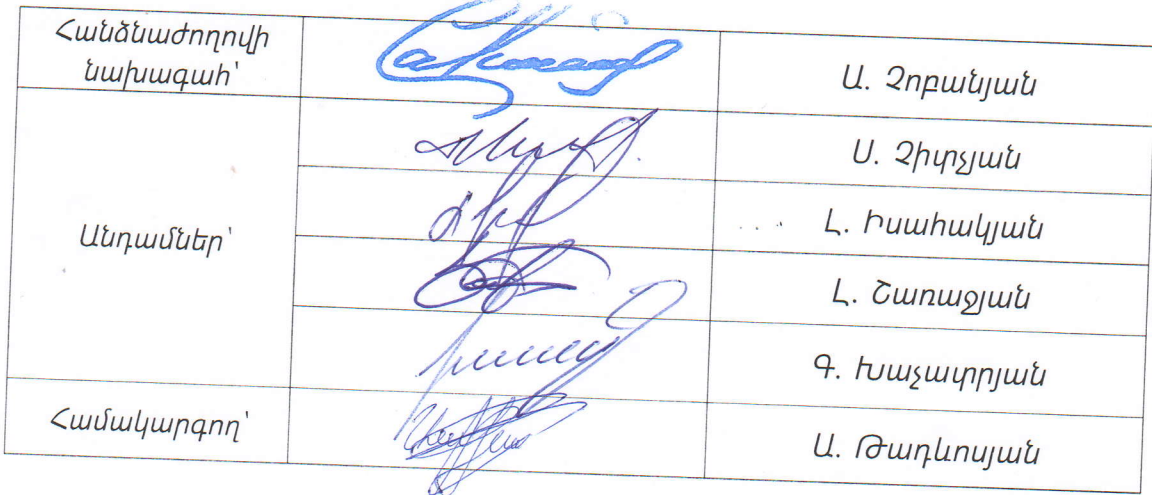 Հանձնաժողովի
նախագահ՝
Ա. Չոբանյան
Անդամներ՝
Ս. Չիտչյան
Լ. Իսահակյան
Լ. Շառաջյան
Գ. Խաչատրյան
Համակարգող՝
Ա. Թադևոսյան